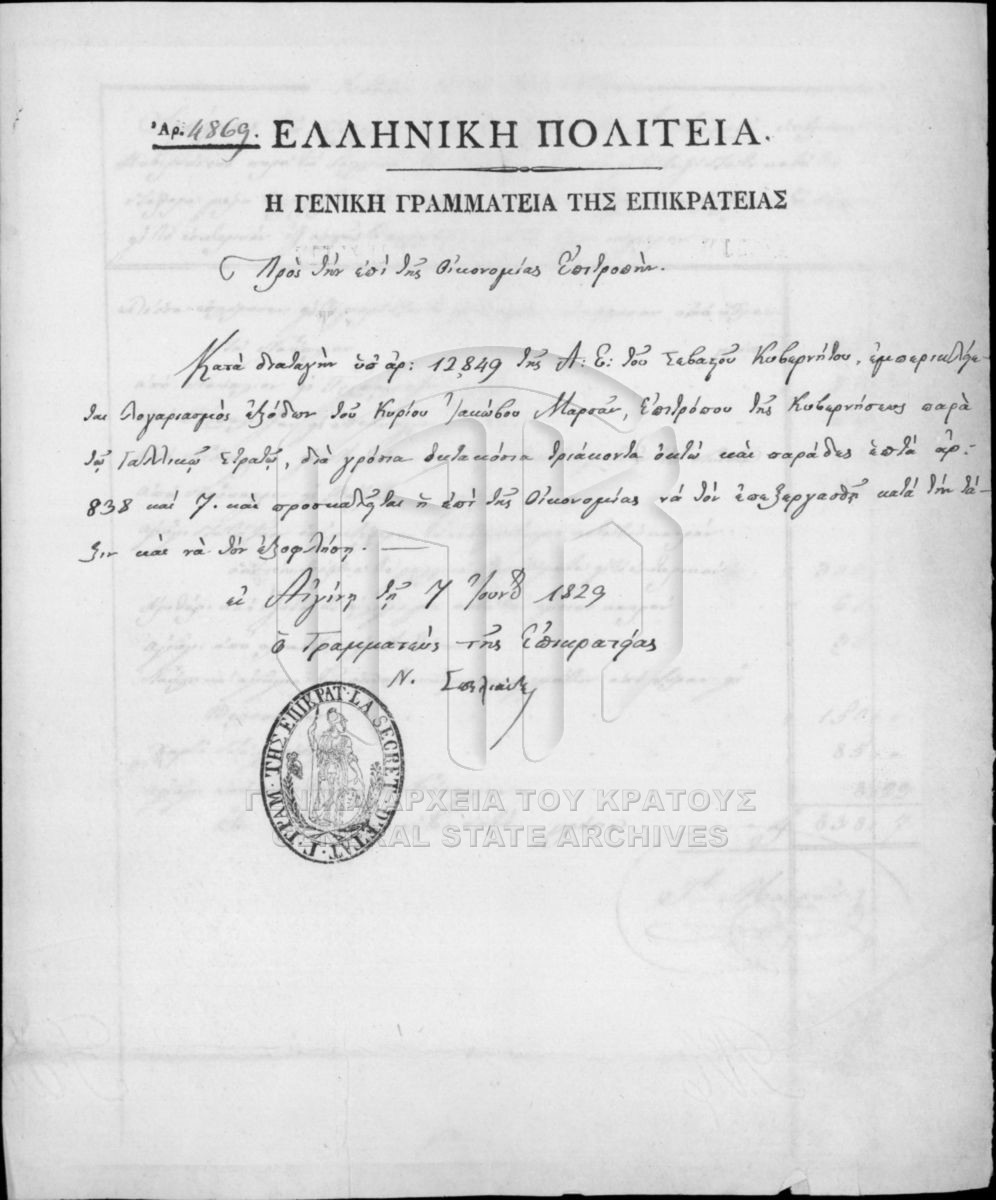 Ἀρ. 4869. ΕΛΛΗΝΙΚΗ ΠΟΛΙΤΕΙΑ.
Η ΓΕΝΙΚΗ ΓΡΑΜΜΑΤΕΙΑ ΤΗΣ ΕΠΙΚΡΑΤΕΙΑΣ
Πρὸς τὴν ἐπὶ τῆς Οἰκονομίας Ἐπιτροπήν.
Κατὰ διαταγὴν ὑπ' ἀρ: 12,849 τῆς Α: Ε: τοῦ Σεβαστοῦ Κυβερνήτου, ἐμπερικλείε-
ται λογαριασμὸς ἐξόδων τοῦ Κυρίου Ἰακώβου Μαρσὰν, Ἐπιτρόπου τῆς Κυβερνήσεως παρὰ
τῷ Γαλλικῷ Στρατῷ, διὰ γρόσια ὀκτακόσια τριάκοντα ὀκτὼ καὶ παράδες ἑπτὰ ἀρ.
838 καὶ 7. καὶ προσκαλεῖται ἡ ἐπὶ τῆς Οἰκονομίας νὰ τὸν ἐπεξεργασθῇ κατὰ τὴν τά-
ξιν καὶ νὰ τὸν ἐξοφλήσῃ.
ἐν Αἰγίνῃ τῇ 7 Ἰουνίου 1829
ὁ Γραμματεὺς τῆς Ἐπικρατείας
Ν. Σπηλιάδης
Γ· ΓΡΑΜ· ΤΗΣ ΕΠΙΚΡΑΤ· LA SECRET· D'ETAT·
ΓΕΝΙΚΑ ΑΡΧΕΙΑ ΤΟΥ ΚΡΑΤΟΥΣ
GENERAL STATE ARCHIVES